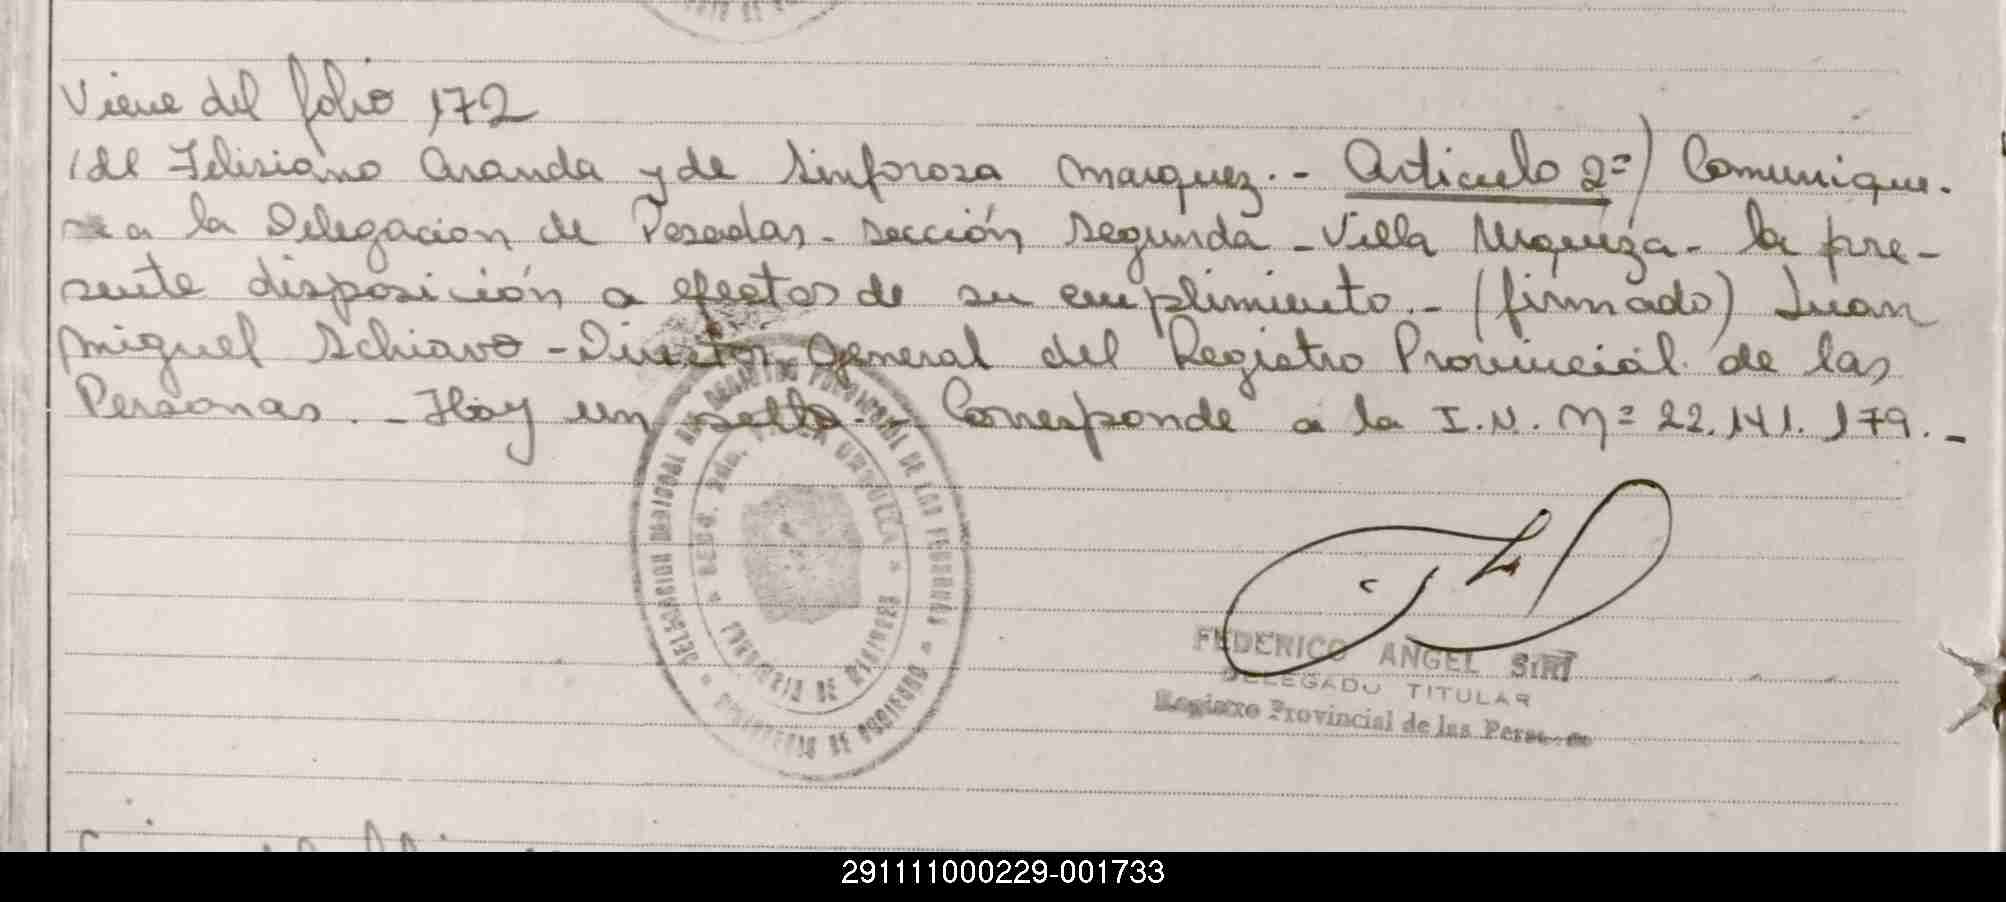 Viene del folio 172
de Felisiano Aranda y de Sinforosa Marquez.- Articulo 2º) Comunique-
se a la Delegacion de Posadas - sección Segunda - Villa Urquiza - la pre-
sente disposición a efectos de su cumplimiento.- (firmado) Juan
Miguel Schiavo - Director General del Registro Provincial de las
Personas. - Hay un sello.- Corresponde a la I.N. Nº 22.141.179.-
REGISTRO PROVINCIAL DE LAS PERSONAS
VILLA URQUIZA
PROVINCIA DE MISIONES
FEDERICO ANGEL
DELEGADO TITULAR
Registro Provincial de las Personas
291111000229-001733